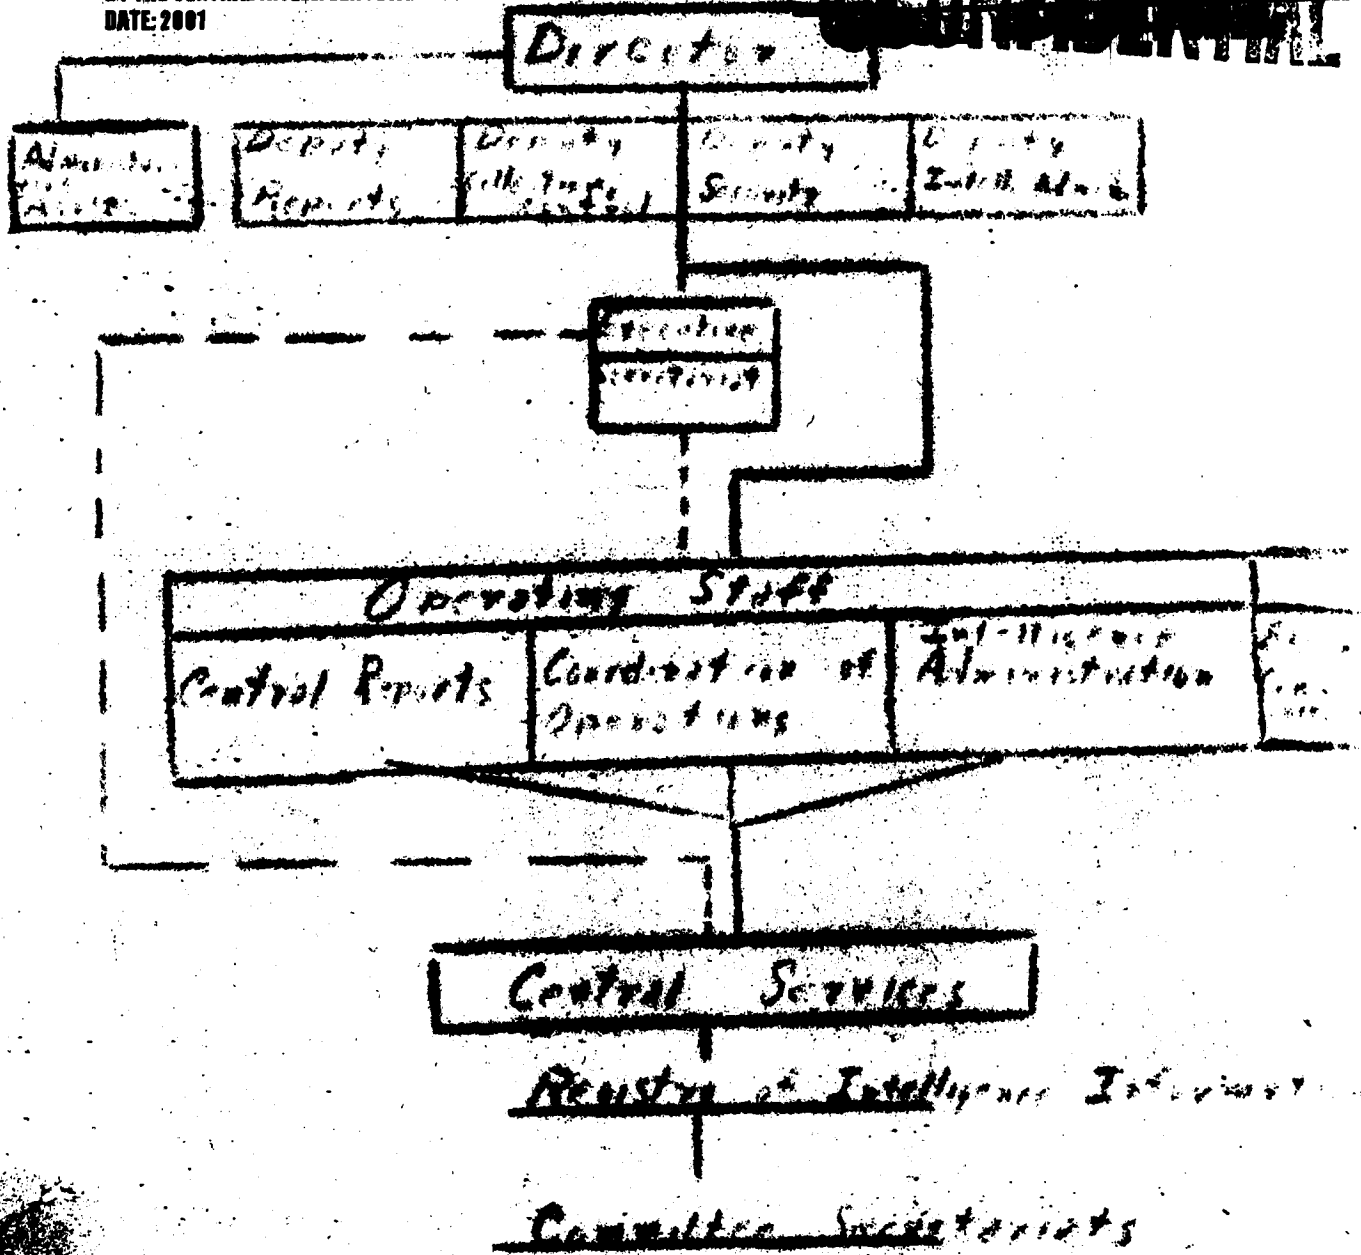 DATE: 2001
Director
Deputy
Reports
Deputy
Deputy
Security
Deputy
Intell. Admin
Executive
Secretariat
Operating Staff
Central Reports
Coordination of
Operations
Intelligence
Administration
Central Services
Registry of Intelligence
Committee Secretariats